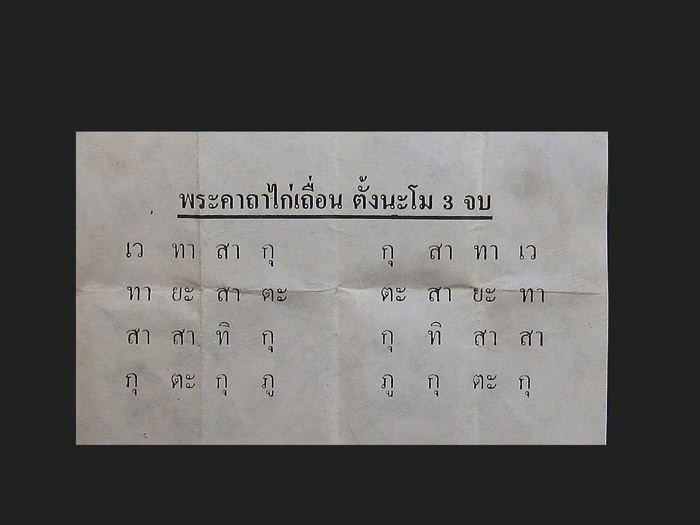 พระคาถาไก่เถื่อน ตั้งนะโม 3 จบ
เว ทา สา กุ กุ สา ทา เว
ทา ยะ สา ตะ ตะ สา ยะ ทา
สา สา ทิ กุ กุ ทิ สา สา
กุ ตะ กุ ภู ภู กุ ตะ กุ